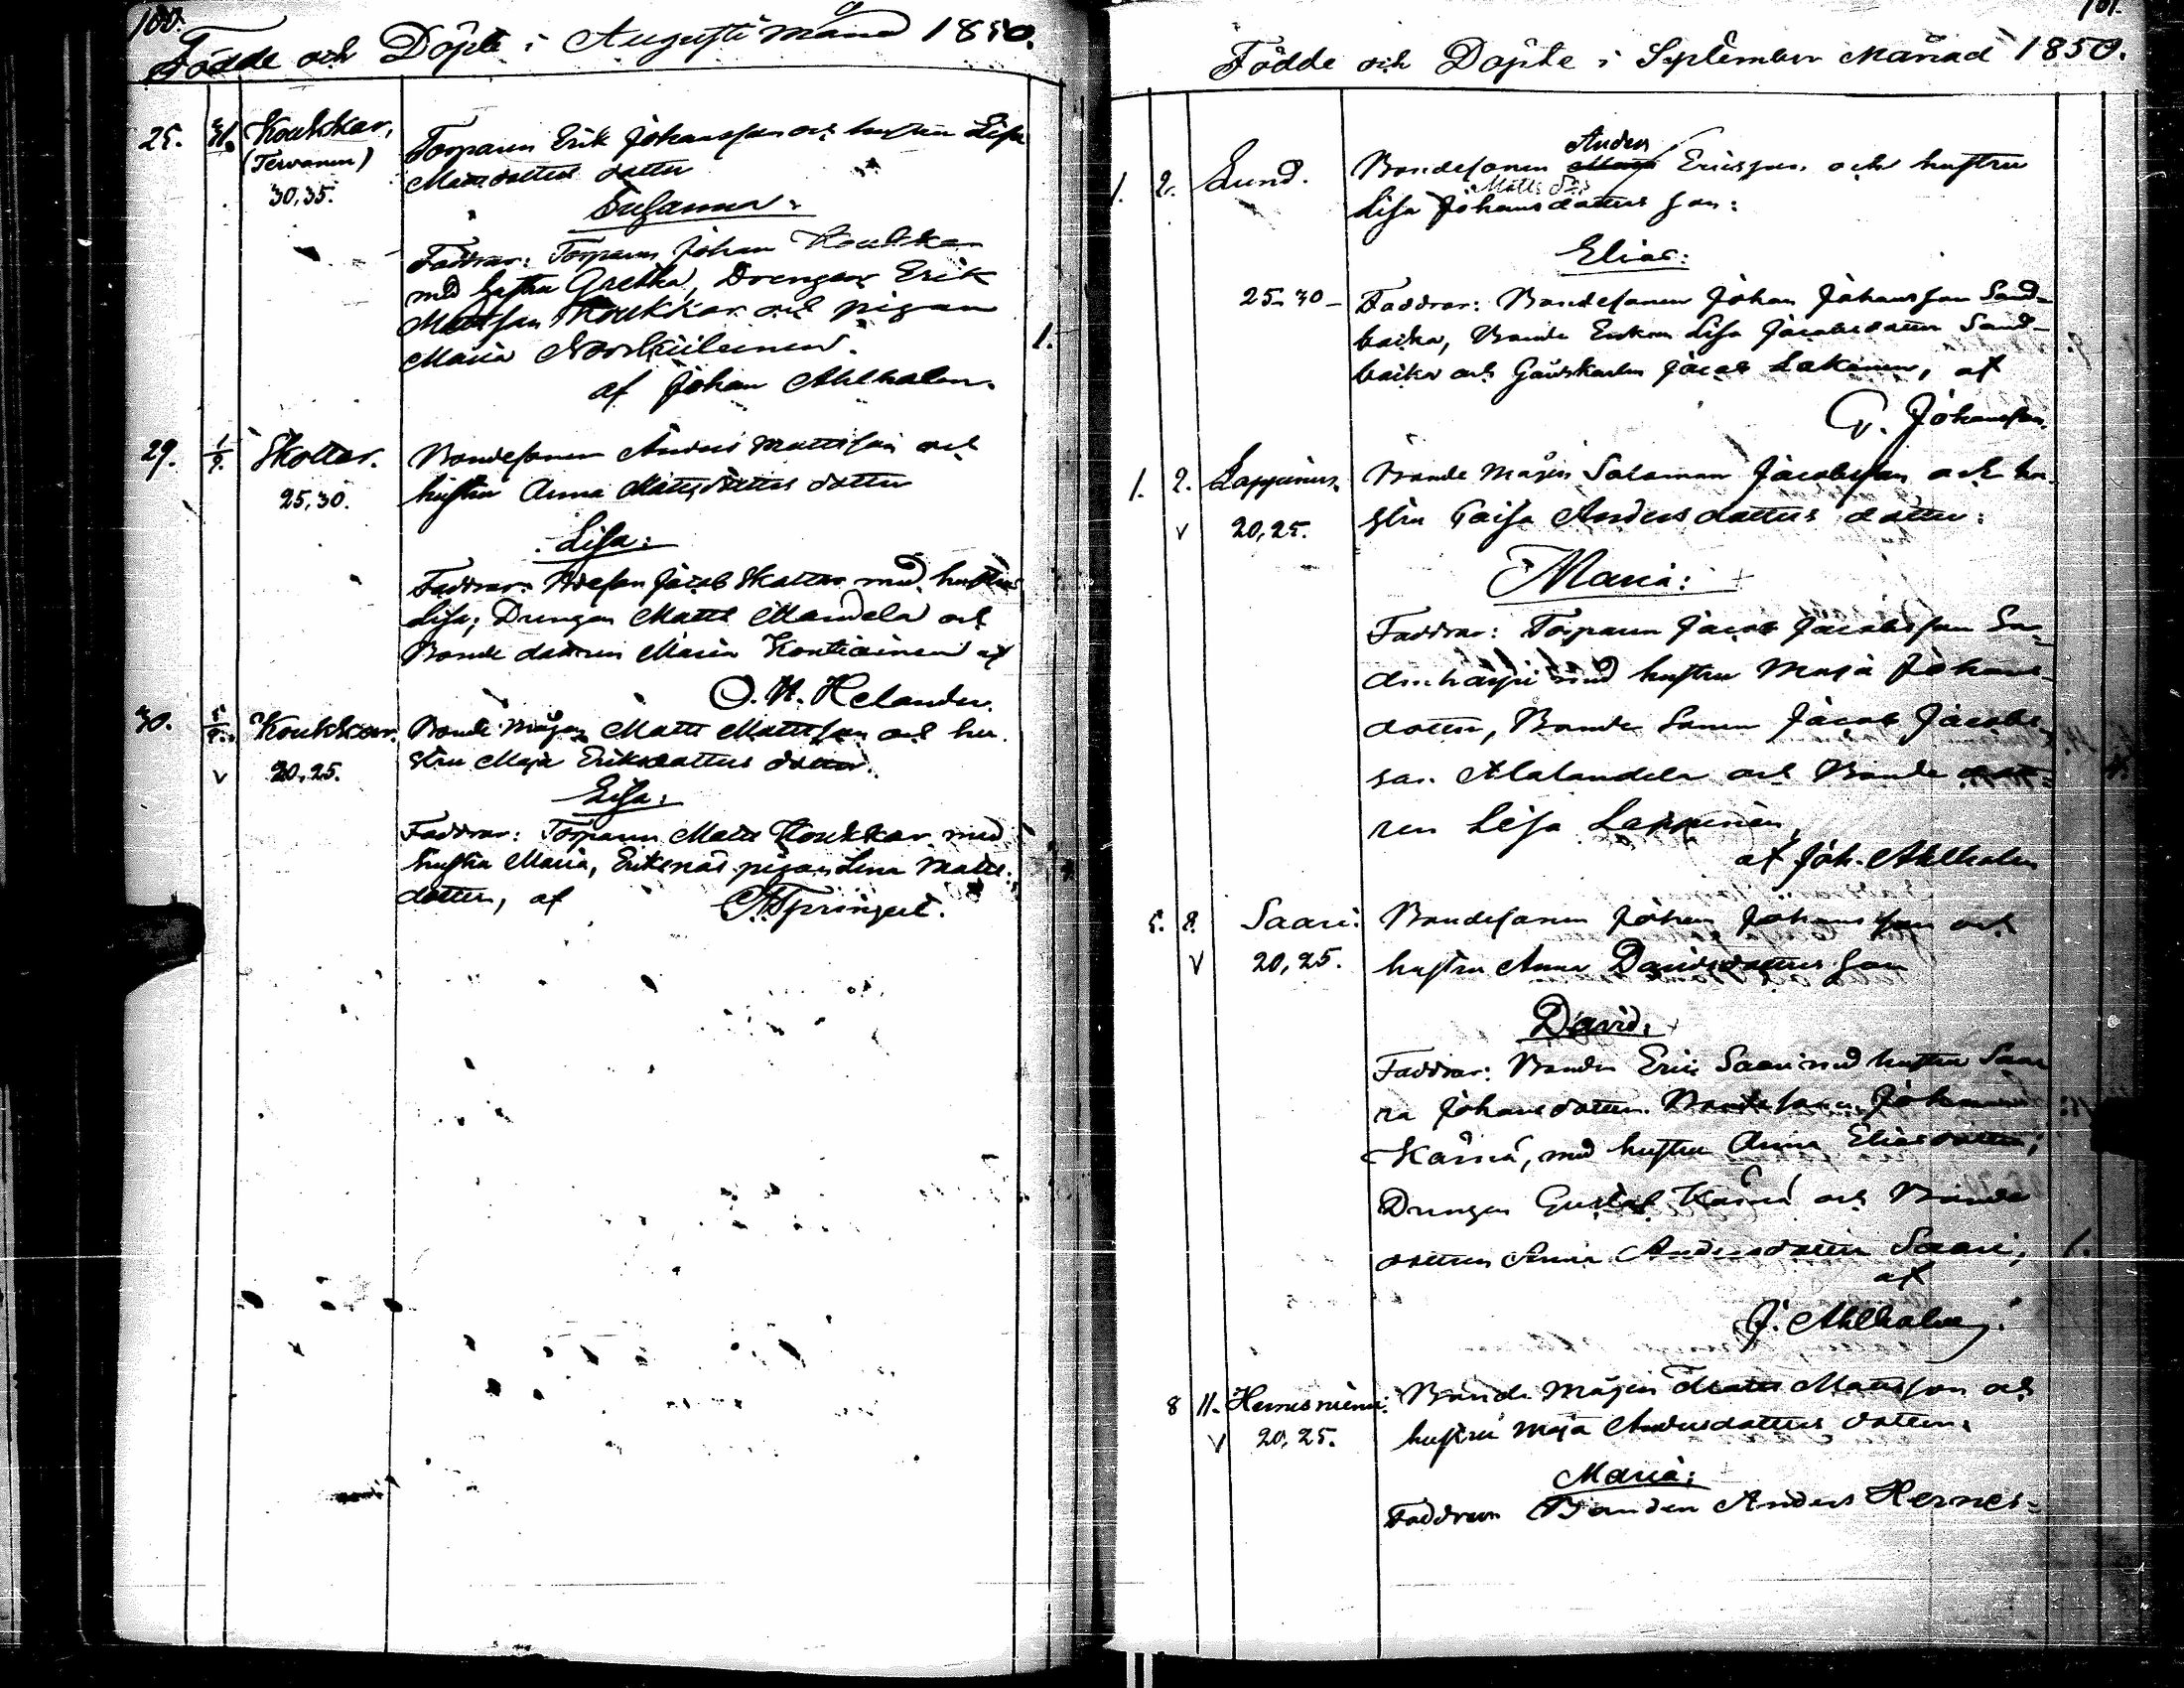 100.
Födde och Döpte i Augusti månad 1850.
25. 31. Koukkar, Torparen Erik Johansson och hustrun Lisa
(Tervanen) Mattsdotters dotter
30,35.
Susanna:
Faddrar: Torparen Johan Koukkar
med hustru Gretha, Drengen Erik
Mattsson Koukkar och pigan
Maria
1.
af Johan Ahlholm.
29. 1/9. Skottar. Bondesonen Anders Mattsson och
25,30. hustru Anna Mattsdotters dotter
Lisa:
Faddrar: Bdeson Jacob Skottar med hustru
Lisa; Drengen Matts Mandela och
Bonde dottren Maria Kontiainen af
O. H. Helander.
30. Koukkar. Bonde mågen Matts Mattsson och hu-
v 20,25. stru Maja Eriksdotters dotter.
Lisa:
Faddrar: Torparen Matts Koukkar med
hustru Maria, Eriksnäs pigan Lena Matts-
dotter, af
101.
Födde och Döpte i September Månad 1850.
Anders
1. 2. Lund. Bondesonen Ericsson och hustru
Matts dos
Lisa Johansdotters son:
Elias:
25-30- Faddrar: Bondesonen Johan Johansson Sand-
backa, Bonde Enkan Lisa Jacobsdotter Sand-
backa och Gårdskarlen Jacob Lakanen, af
G. Johansson.
1. 2. Lappinen. Bonde mågen Salomon Jacobsson och hu-
v 20,25. stru Caisa Andersdotters dotter:
Maria:
Faddrar: Torparen Jacob Jacobsson
med hustru Maja Johans-
dotter, Bonde Sonen Jacob Jacobs-
son Alalandela och Bonde dott-
ren Lisa Lappinen,
af Joh. Ahlholm
5. 8. Saari. Bondesonen Johan Johansson och
v 20,25. hustru Anna Davidsdotters son
David:
Faddrar: Bonden Eric Saari med hustru Saa
ra Johansdotter. Bondesonen Johan
Kärnä, med hustru Anna Eliasdotter,
Drengen Gustaf Kärnä och Bonde
dottren Anna Andersdotter Saari,
1.
af
J. Ahlholm.
8 11. Hernesniemi. Bonde Mågen Matts Mattsson och
v 20,25. hustru Maja Andersdotters dotter.
Maria:
Faddrar Bonden Anders Hernes-